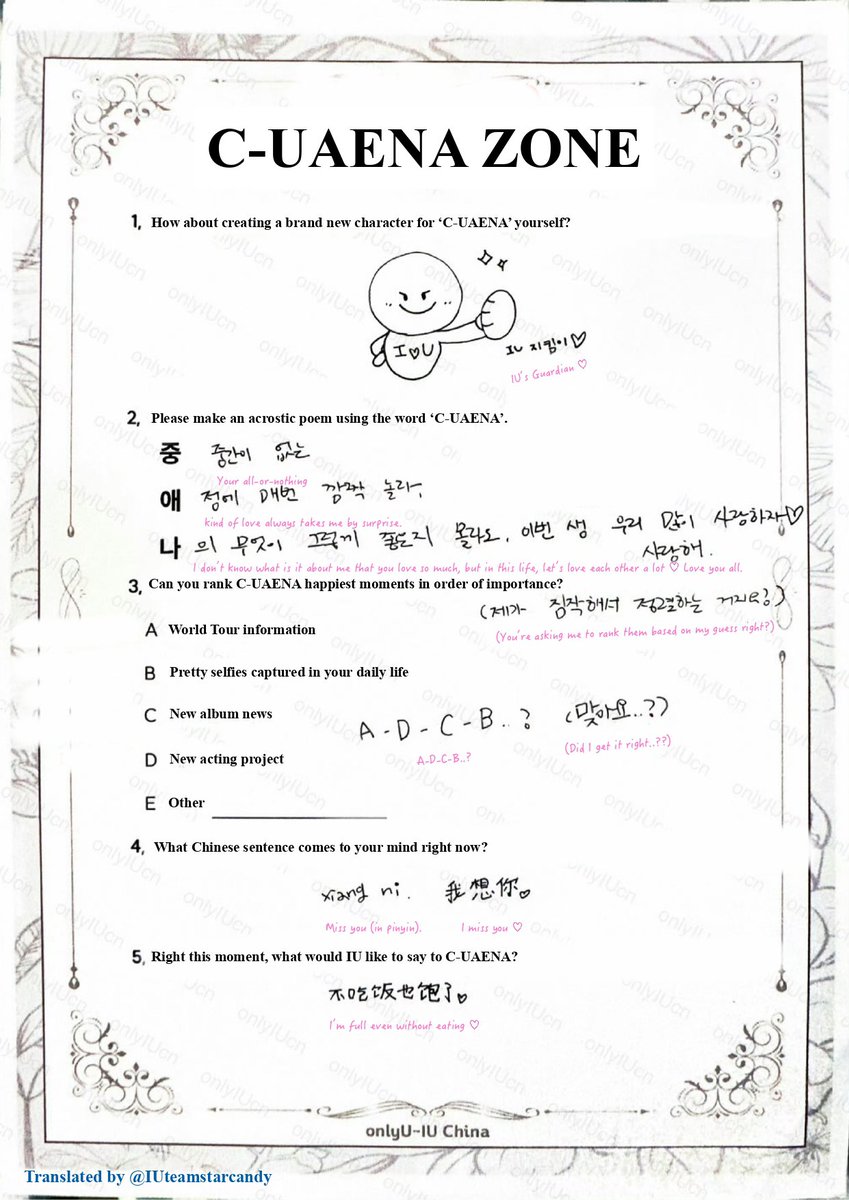 C-UAENA ZONE
1, How about creating a brand new character for ‘C-UAENA’ yourself?
I♡U
IU 지킴이♡
IU's Guardian ♡
2, Please make an acrostic poem using the word ‘C-UAENA’.
중 중간이 없는
Your all-or-nothing
애 정에 매번 깜짝 놀라,
kind of love always takes me by surprise.
나 의 무엇이 그렇게 좋은지 몰라도, 이번 생 우리 많이 사랑하자♡
사랑해.
I don't know what is it about me that you love so much, but in this life, let's love each other a lot ♡ Love you all.
3, Can you rank C-UAENA happiest moments in order of importance?
(제가 짐작해서 정결하는 거지요?)
(You're asking me to rank them based on my guess right?)
A World Tour information
B Pretty selfies captured in your daily life
C New album news
A-D-C-B..? (맞아요..?)
A-D-C-B..? (Did I get it right..??)
D New acting project
E Other
4, What Chinese sentence comes to your mind right now?
xiang ni. 我想你♡
Miss you (in pinyin). I miss you ♡
5, Right this moment, what would IU like to say to C-UAENA?
不吃饭也饱了♡
I'm full even without eating ♡
onlyU-IU China
Translated by @IUteamstarcandy
onlyIUcn